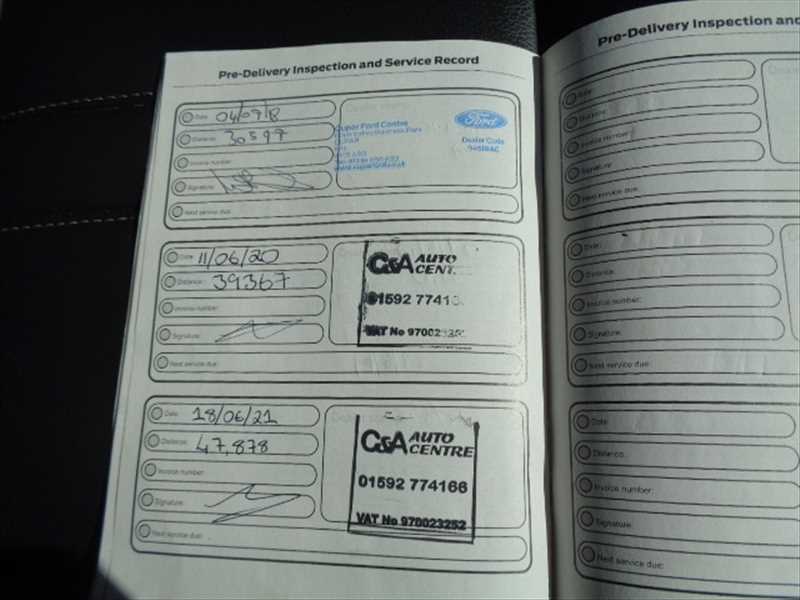 Pre-Delivery Inspection and Service Record
Date: 04/09/18
Distance: 30597
Invoice number:
Signature:
Next service due:
Cupar Ford Centre
CUPAR
Ford
Dealer Code
Date: 11/06/20
Distance: 39367
Invoice number:
Signature:
Next service due:
C&A AUTO
CENT
01592 7741
VAT No 970023
Date: 18/06/21
Distance: 47,878
Invoice number:
Signature:
Next service due:
C&A AUTO
CENTRE
01592 774166
VAT No 970023252
Pre-Delivery Inspection and
Date:
Distance:
Invoice number:
Signature:
Next service due:
Date:
Distance:
Invoice number:
Signature:
Next service due:
Date:
Distance:
Invoice number:
Signature:
Next service due: